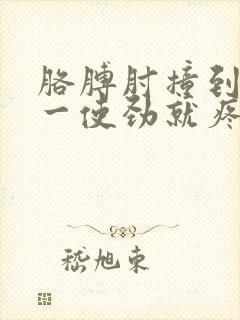 胳膊肘撞到
一使劲就疼
嵇旭东